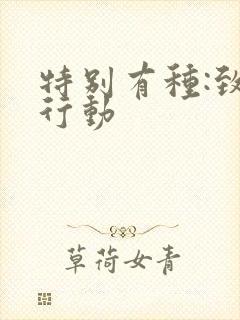 特别有種:致
行動
草荷女青